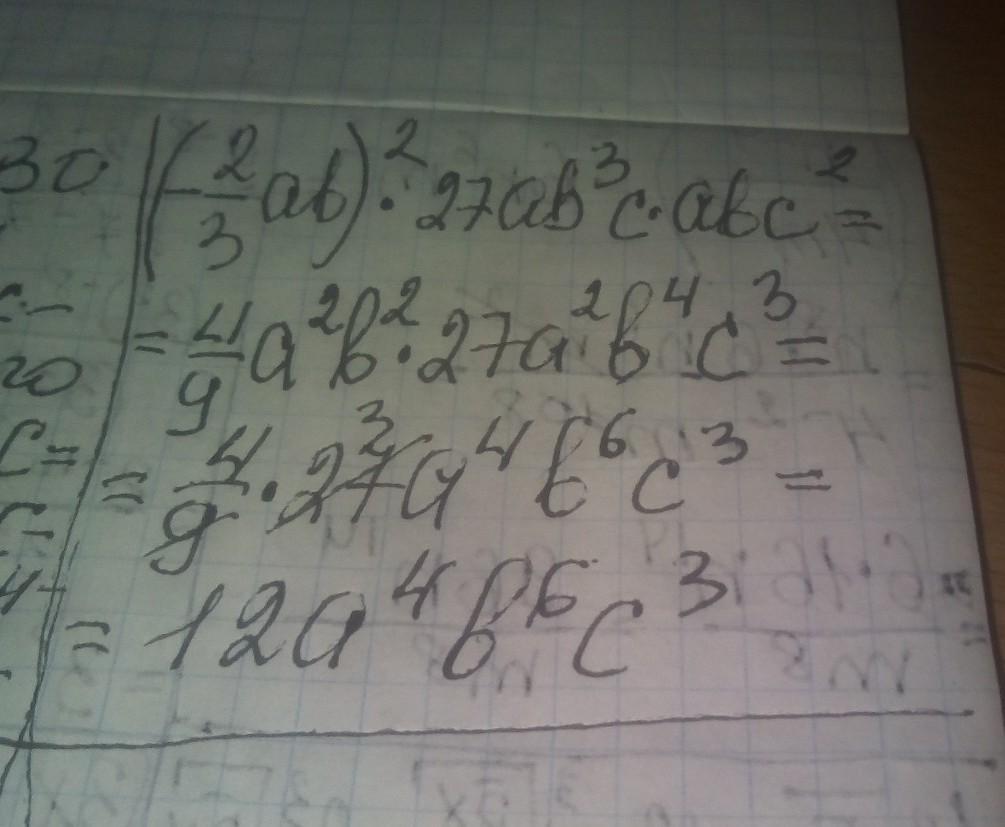 30 (-2/3 ab)² · 27ab³c · abc² =
= 4/9 a²b² · 27a²b⁴c³ =
20
c= = 4/9 · 27³a⁴b⁶c³ =
= 12a⁴b⁶c³